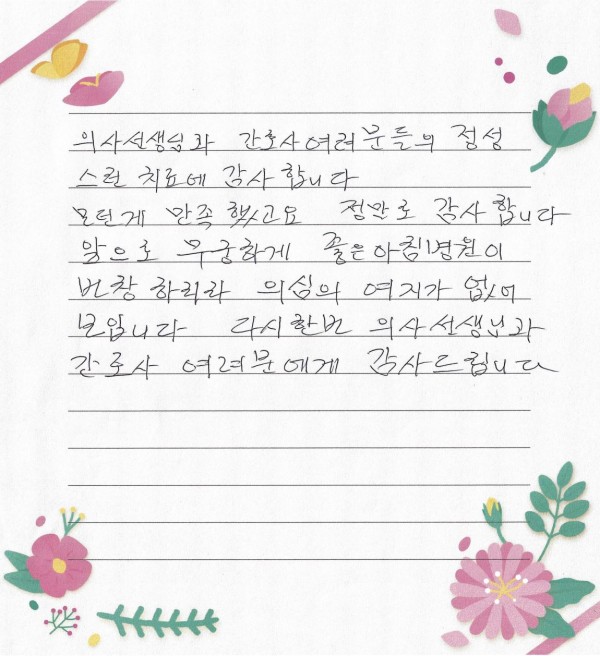 의사선생님과 간호사여러분들의 정성
스런 치료에 감사합니다
모던게 만족했고요 정말로 감사합니다
앞으로 무궁하게 좋은아침병원이
번창 하리라 의심의 여지가 없어
보입니다 다시한번 의사선생님과
간호사 여러분에게 감사드립니다